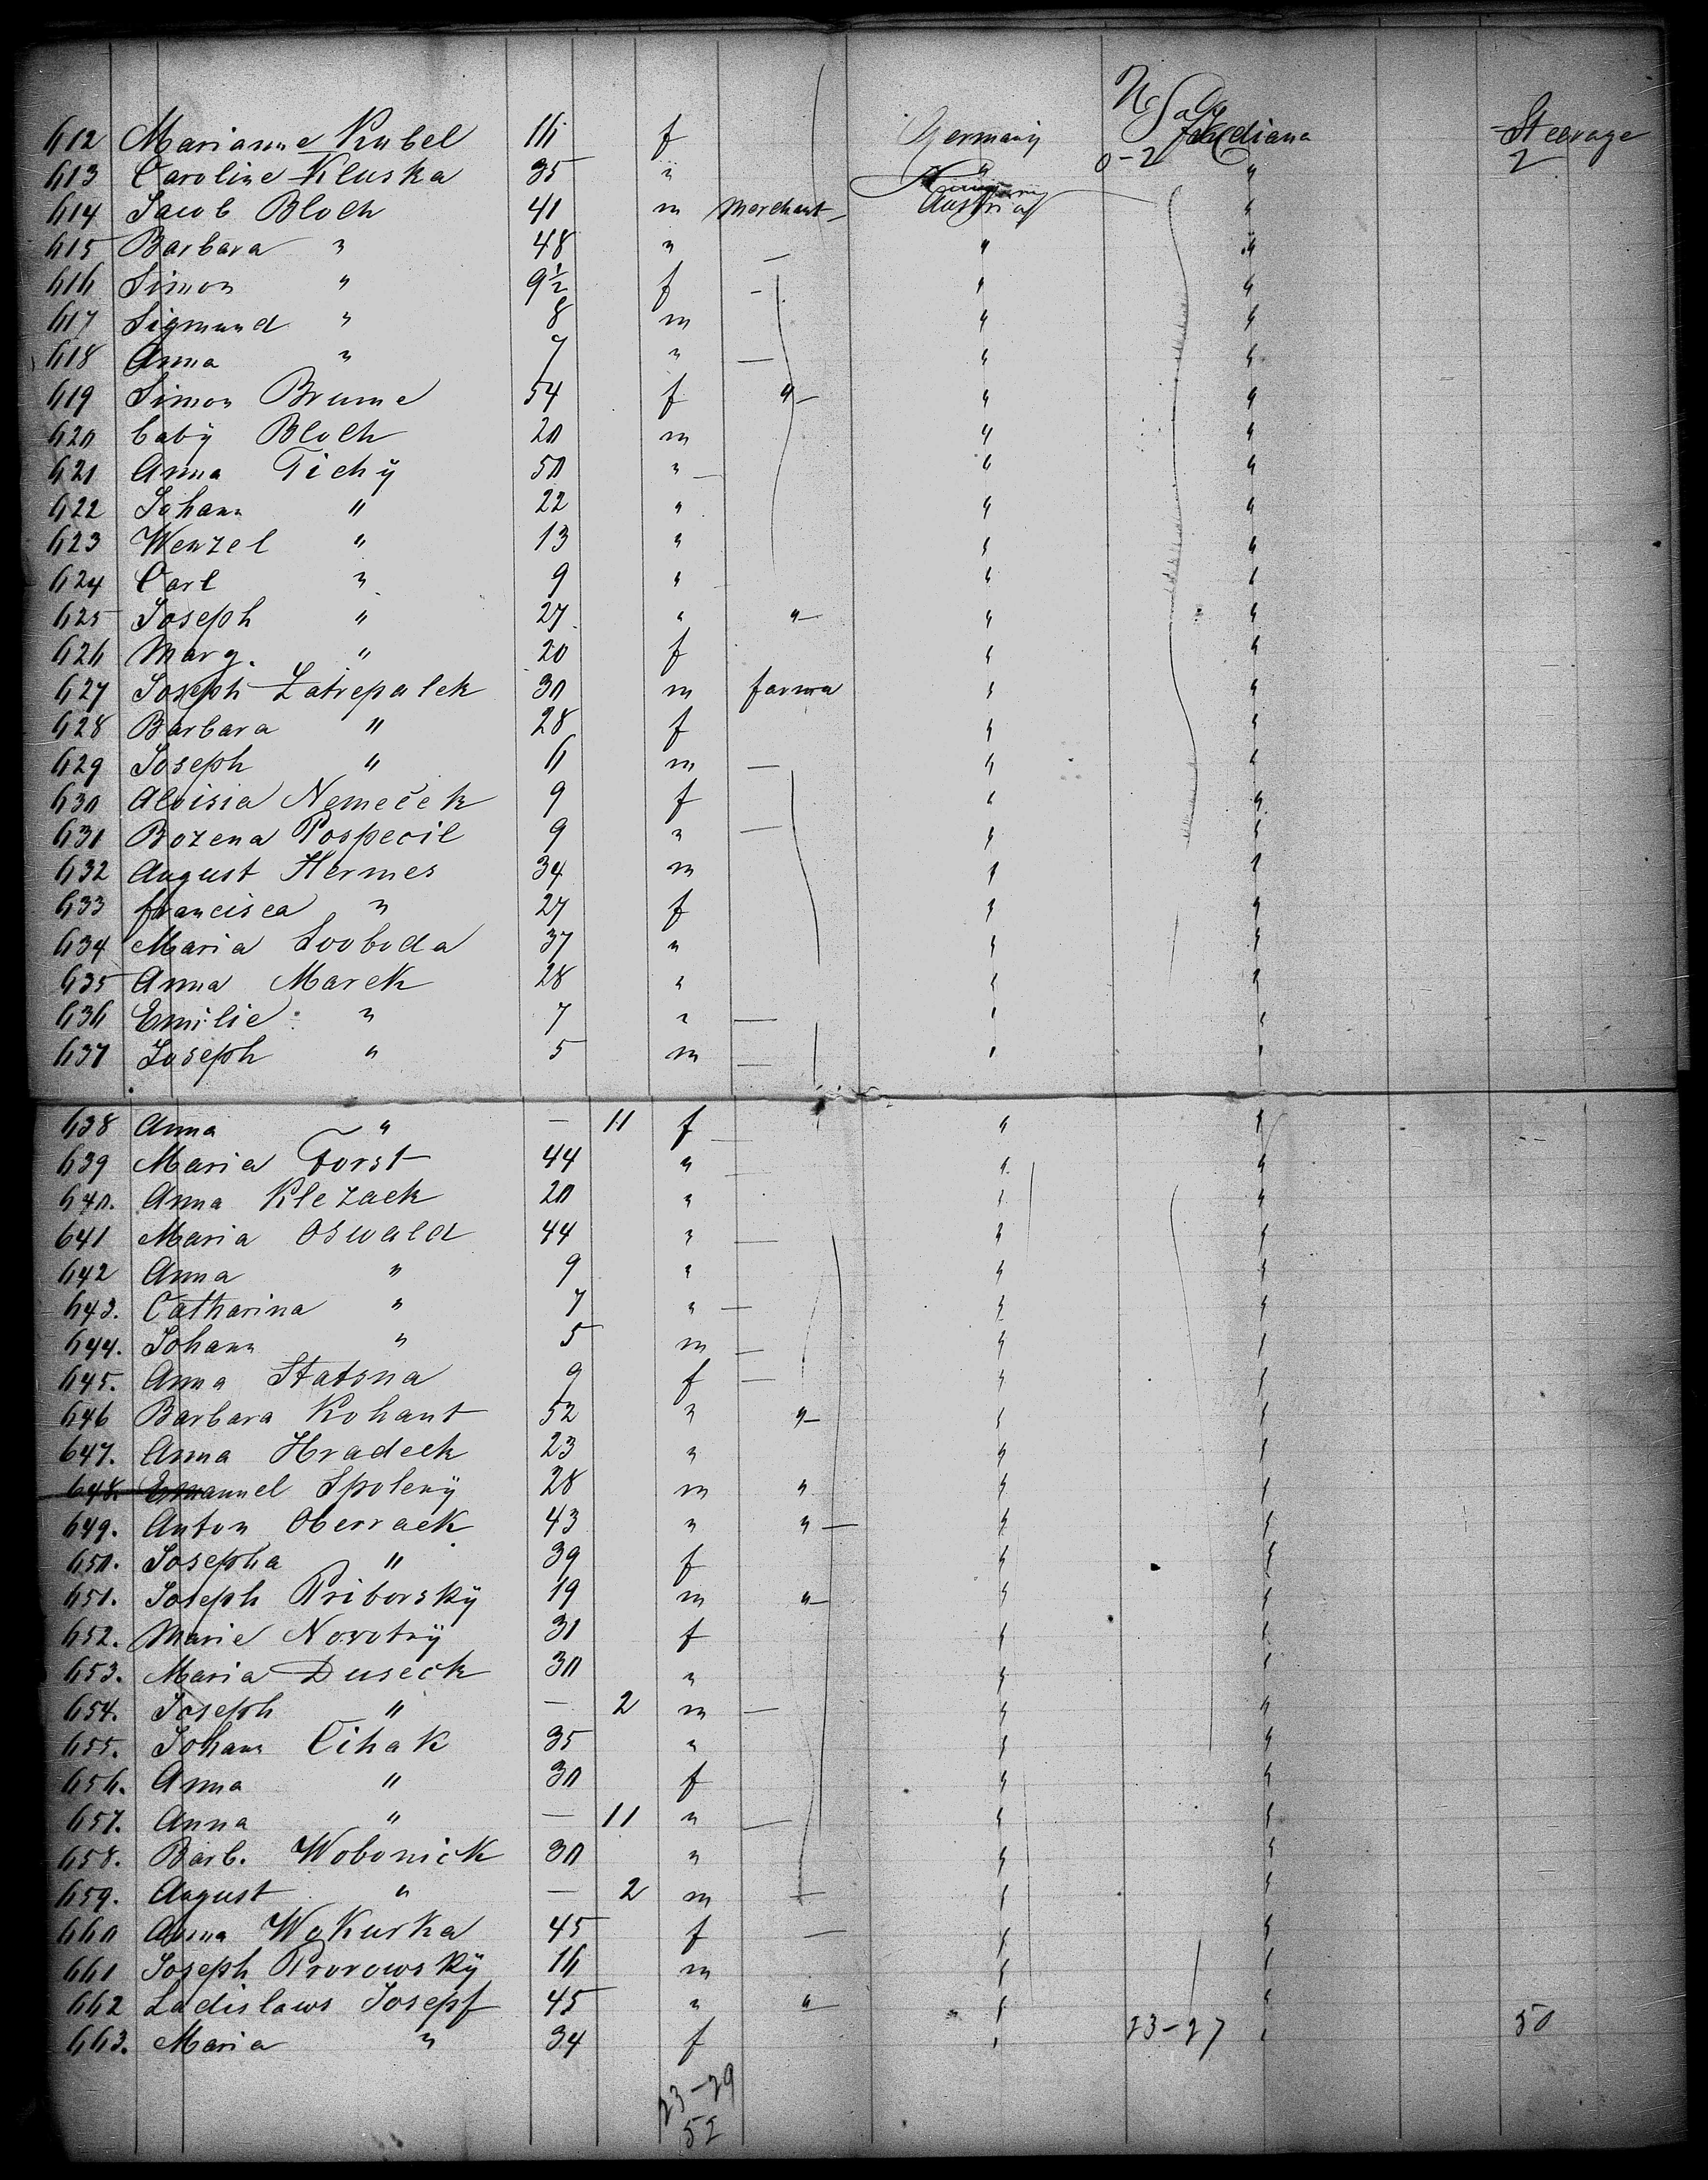 612 Marianne Kubel 16 f Germany Indiana Steerage
613 Caroline Kluska 35 " " 0-2 " 2
614 Jacob Bloch 41 m Merchant Austria "
615 Barbara " 48 " — " "
616 Simon " 9½ f - " "
617 Sigmund " 8 m " "
618 Anna " 7 " — " "
619 Simon Brume 54 f " " "
620 baby Bloch 20 m " "
621 Anna Tichÿ 50 " — " "
622 Johann " 22 " " "
623 Wenzel " 13 " " "
624 Carl " 9 " " "
625 Joseph " 27 " " " "
626 Marg. " 20 f " "
627 Joseph Zatrepalek 30 m farmer " "
628 Barbara " 28 f " "
629 Joseph " 6 m — " "
630 Aloisia Nemeček 9 f " "
631 Bozena Pospecil 9 " — " "
632 August Hermes 34 m " "
633 francisca " 27 f " "
634 Maria Svoboda 37 " " "
635 Anna Marek 28 " " "
636 Emilie " 7 " — " "
637 Joseph " 5 m — " "
638 Anna " — 11 f — " "
639 Maria Forst 44 " — " "
640. Anna Klezack 20 " " "
641 Maria Oswald 44 " — " "
642 Anna " 9 " " "
643. Catharina " 7 " — " "
644. Johann " 5 m — " "
645. Anna Statsna 9 f — " "
646 Barbara Kohant 52 " " " "
647. Anna Hradeck 23 " " "
648. Emanuel Spolenÿ 28 m " " "
649. Anton Oberrack 43 " " — " "
650. Josepha " 39 f " "
651. Joseph Priborskÿ 19 m " " "
652. Marie Novotnÿ 31 f " "
653. Maria Duseck 30 " " "
654. Joseph " — 2 m — " "
655. Johann Cihak 35 " " "
656. Anna " 30 f " "
657. Anna " — 11 " — " "
658. Barb. Wobonick 30 " " "
659. August " — 2 m — " "
660 Anna Wokurka 45 f — " "
661 Joseph Prorowskÿ 16 m " "
662 Ladislaws Josepf 45 " " " "
663. Maria " 34 f " 23-27 " 50
23-29
52